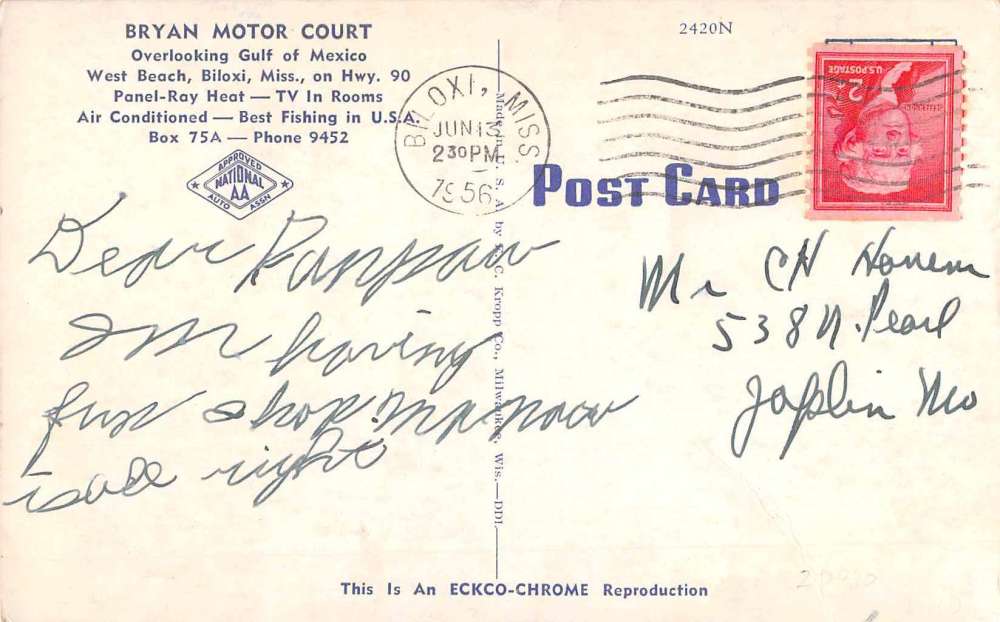 BRYAN MOTOR COURT
Overlooking Gulf of Mexico
West Beach, Biloxi, Miss., on Hwy. 90
Panel-Ray Heat — TV In Rooms
Air Conditioned — Best Fishing in U.S.A.
Box 75A — Phone 9452
APPROVED
NATIONAL
AA
AUTO ASSN
Dear Panpaw
Im having
fun shop
is all right
Made in U. S. A. by E. C. Kropp Co., Milwaukee, Wis.—DDL
2420N
BILOXI, MISS.
JUN 13
2 30 PM
1956
U.S. POSTAGE
2¢
JEFFERSON
POST CARD
Mr CH
538 N. Pearl
Joplin Mo
This Is An ECKCO-CHROME Reproduction